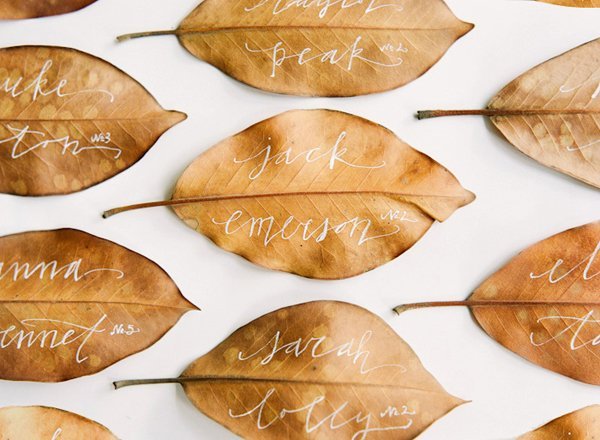 peak No 2
uke
ton No 3
jack
emerson No 2
anna
ennet No 5
sarah
lolly No 2
el
ta